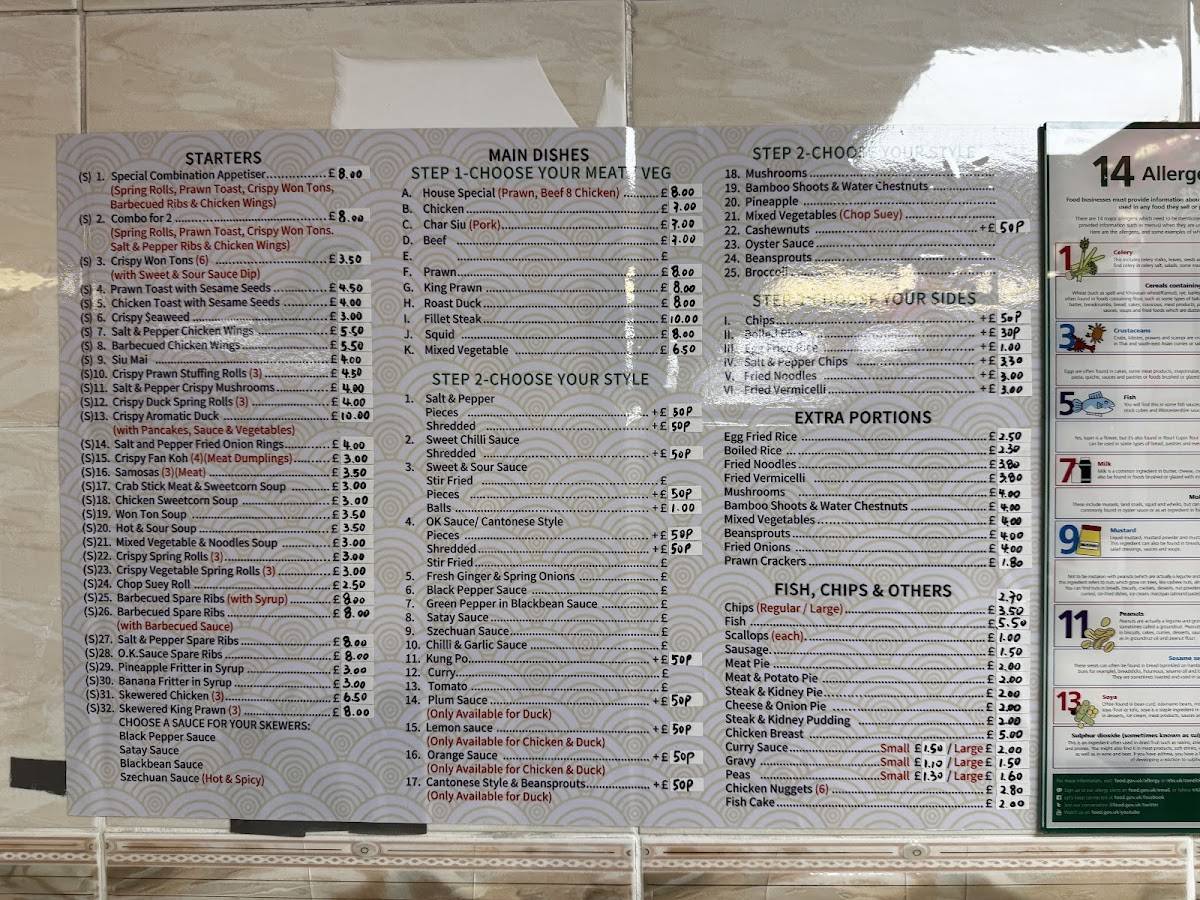 STARTERS
(S) 1. Special Combination Appetiser £ 8.00
(Spring Rolls, Prawn Toast, Crispy Won Tons,
Barbecued Ribs & Chicken Wings)
(S) 2. Combo for 2 £ 8.00
(Spring Rolls, Prawn Toast, Crispy Won Tons.
Salt & Pepper Ribs & Chicken Wings)
(S) 3. Crispy Won Tons (6) £ 3.50
(with Sweet & Sour Sauce Dip)
(S) 4. Prawn Toast with Sesame Seeds £ 4.50
(S) 5. Chicken Toast with Sesame Seeds £ 4.00
(S) 6. Crispy Seaweed £ 3.00
(S) 7. Salt & Pepper Chicken Wings £ 5.50
(S) 8. Barbecued Chicken Wings £ 5.50
(S) 9. Siu Mai £ 4.00
(S)10. Crispy Prawn Stuffing Rolls (3) £ 4.50
(S)11. Salt & Pepper Crispy Mushrooms £ 4.00
(S)12. Crispy Duck Spring Rolls (3) £ 4.00
(S)13. Crispy Aromatic Duck £ 10.00
(with Pancakes, Sauce & Vegetables)
(S)14. Salt and Pepper Fried Onion Rings £ 4.00
(S)15. Crispy Fan Koh (4)(Meat Dumplings) £ 3.00
(S)16. Samosas (3)(Meat) £ 3.50
(S)17. Crab Stick Meat & Sweetcorn Soup £ 3.00
(S)18. Chicken Sweetcorn Soup £ 3.00
(S)19. Won Ton Soup £ 3.50
(S)20. Hot & Sour Soup £ 3.50
(S)21. Mixed Vegetable & Noodles Soup £ 3.00
(S)22. Crispy Spring Rolls (3) £ 3.00
(S)23. Crispy Vegetable Spring Rolls (3) £ 3.00
(S)24. Chop Suey Roll £ 2.50
(S)25. Barbecued Spare Ribs (with Syrup) £ 8.00
(S)26. Barbecued Spare Ribs £ 8.00
(with Barbecued Sauce)
(S)27. Salt & Pepper Spare Ribs £ 8.00
(S)28. O.K.Sauce Spare Ribs £ 8.00
(S)29. Pineapple Fritter in Syrup £ 3.00
(S)30. Banana Fritter in Syrup £ 3.00
(S)31. Skewered Chicken (3) £ 6.50
(S)32. Skewered King Prawn (3) £ 8.00
CHOOSE A SAUCE FOR YOUR SKEWERS:
Black Pepper Sauce
Satay Sauce
Blackbean Sauce
Szechuan Sauce (Hot & Spicy)
MAIN DISHES
STEP 1-CHOOSE YOUR MEAT / VEG
A. House Special (Prawn, Beef 8 Chicken) £ 8.00
B. Chicken £ 7.00
C. Char Siu (Pork) £ 7.00
D. Beef £ 7.00
E. £
F. Prawn £ 8.00
G. King Prawn £ 8.00
H. Roast Duck £ 8.00
I. Fillet Steak £ 10.00
J. Squid £ 8.00
K. Mixed Vegetable £ 6.50
STEP 2-CHOOSE YOUR STYLE
1. Salt & Pepper
Pieces +£ 50P
Shredded +£ 50P
2. Sweet Chilli Sauce
Shredded +£ 50P
3. Sweet & Sour Sauce
Stir Fried £
Pieces +£ 50P
Balls +£ 1.00
4. OK Sauce/ Cantonese Style
Pieces +£ 50P
Shredded +£ 50P
Stir Fried £
5. Fresh Ginger & Spring Onions £
6. Black Pepper Sauce £
7. Green Pepper in Blackbean Sauce £
8. Satay Sauce £
9. Szechuan Sauce £
10. Chilli & Garlic Sauce £
11. Kung Po +£ 50P
12. Curry £
13. Tomato £
14. Plum Sauce +£ 50P
(Only Available for Duck)
15. Lemon sauce +£ 50P
(Only Available for Chicken & Duck)
16. Orange Sauce +£ 50P
(Only Available for Chicken & Duck)
17. Cantonese Style & Beansprouts +£ 50P
(Only Available for Duck)
STEP 2-CHOOSE YOUR STYLE
18. Mushrooms
19. Bamboo Shoots & Water Chestnuts
20. Pineapple
21. Mixed Vegetables (Chop Suey)
22. Cashewnuts +£ 50P
23. Oyster Sauce
24. Beansprouts
25. Broccoli
STEP CHOOSE YOUR SIDES
I. Chips +£ 50P
II. Boiled Rice +£ 30P
III. Egg Fried Rice +£ 1.00
IV. Salt & Pepper Chips +£ 3.30
V. Fried Noodles +£ 3.00
VI. Fried Vermicelli +£ 3.00
EXTRA PORTIONS
Egg Fried Rice £ 2.50
Boiled Rice £ 2.30
Fried Noodles £ 3.80
Fried Vermicelli £ 3.80
Mushrooms £ 4.00
Bamboo Shoots & Water Chestnuts £ 4.00
Mixed Vegetables £ 4.00
Beansprouts £ 4.00
Fried Onions £ 4.00
Prawn Crackers £ 1.80
FISH, CHIPS & OTHERS
2.70
Chips (Regular / Large) £ 3.50
Fish £ 5.50
Scallops (each) £ 1.00
Sausage £ 1.50
Meat Pie £ 2.00
Meat & Potato Pie £ 2.00
Steak & Kidney Pie £ 2.00
Cheese & Onion Pie £ 2.00
Steak & Kidney Pudding £ 2.00
Chicken Breast £ 5.00
Curry Sauce Small £1.50 / Large £ 2.00
Gravy Small £1.10 / Large £ 1.50
Peas Small £1.30 / Large £ 1.60
Chicken Nuggets (6) £ 2.80
Fish Cake £ 2.00
14 Allerge
Food businesses must provide information abou
used in any food they sell or p
1 Celery
Cereals containing
3 Crustaceans
5 Fish
7 Milk
9 Mustard
11 Peanuts
Sesame se
13 Soya
Sulphur dioxide (sometimes known as sul